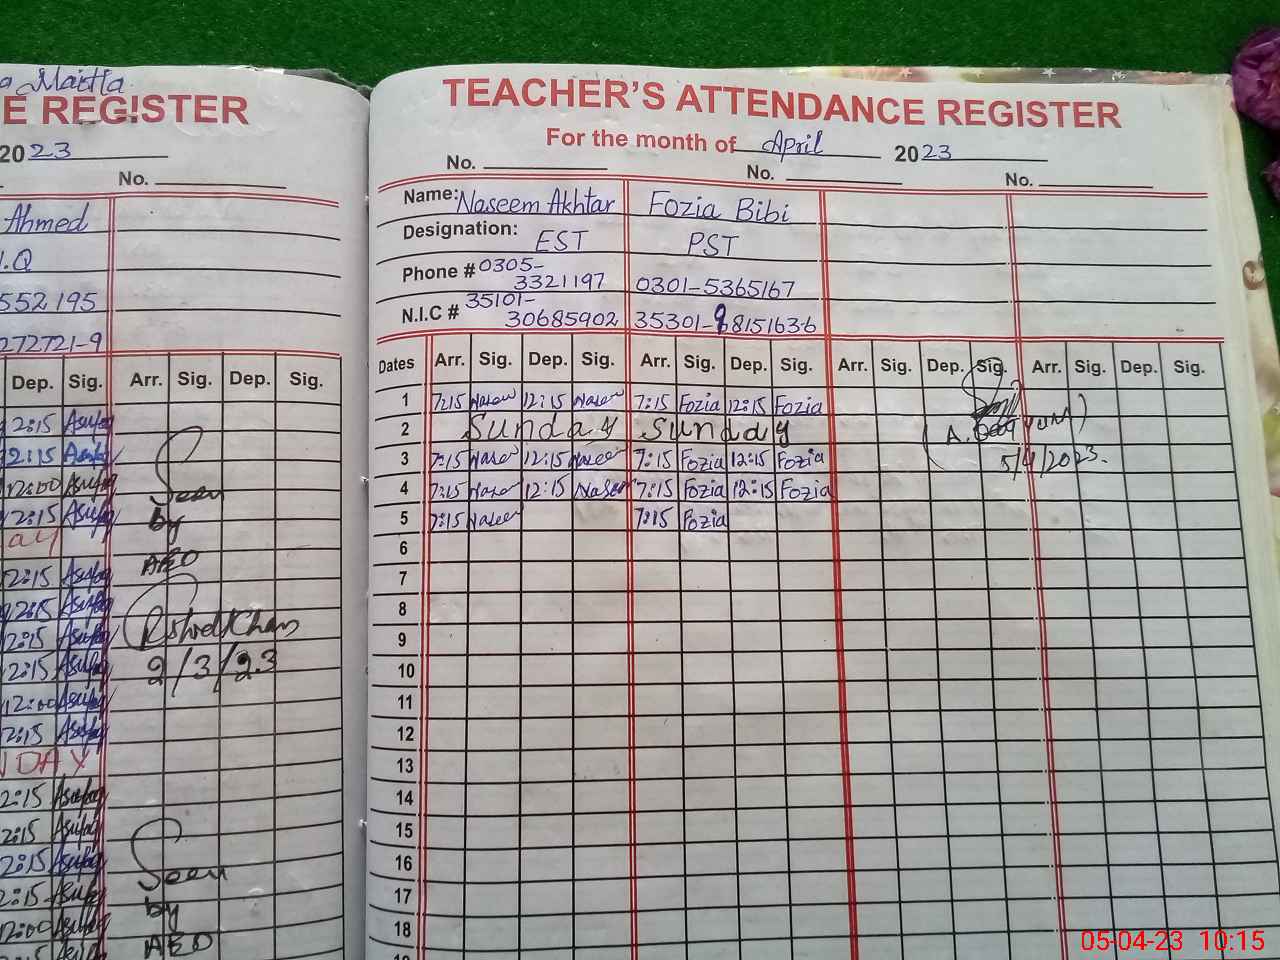 Maitla
E REGISTER
2023
No.
Ahmed
I.Q
552195
272721-9
Dep. Sig. Arr. Sig. Dep. Sig.
2:15 Asufaq
2:15 Asufaq
12:00 Asufaq
12:15 Asufaq
ay
12:15 Asufaq
2:15 Asufaq
2:15 Asufaq
2:15 Asufaq
12:00 Asufaq
12:15 Asufaq
NDAY
2:15 Asufaq
2:15 Asufaq
2:15 Asufaq
2:15 Asufaq
12:00 Asufaq
Seen
by
AEO
2/3/23
Seen
by
AEO
TEACHER'S ATTENDANCE REGISTER
For the month of April 2023
No. No. No.
Name: Naseem Akhtar Fozia Bibi
Designation: EST PST
Phone # 0305-
3321197 0301-5365167
N.I.C # 35101-
30685902 35301-98151636
Dates Arr. Sig. Dep. Sig. Arr. Sig. Dep. Sig. Arr. Sig. Dep. Sig. Arr. Sig. Dep. Sig.
1 7:15 Naseer 12:15 Naseer 7:15 Fozia 12:15 Fozia
2 Sunday Sunday
3 7:15 Naseer 12:15 Naseer 7:15 Fozia 12:15 Fozia
4 7:15 Naseer 12:15 Naseer 7:15 Fozia 12:15 Fozia
5 7:15 Naseer 7:15 Fozia
5/4/2023.
6
7
8
9
10
11
12
13
14
15
16
17
18
05-04-23 10:15